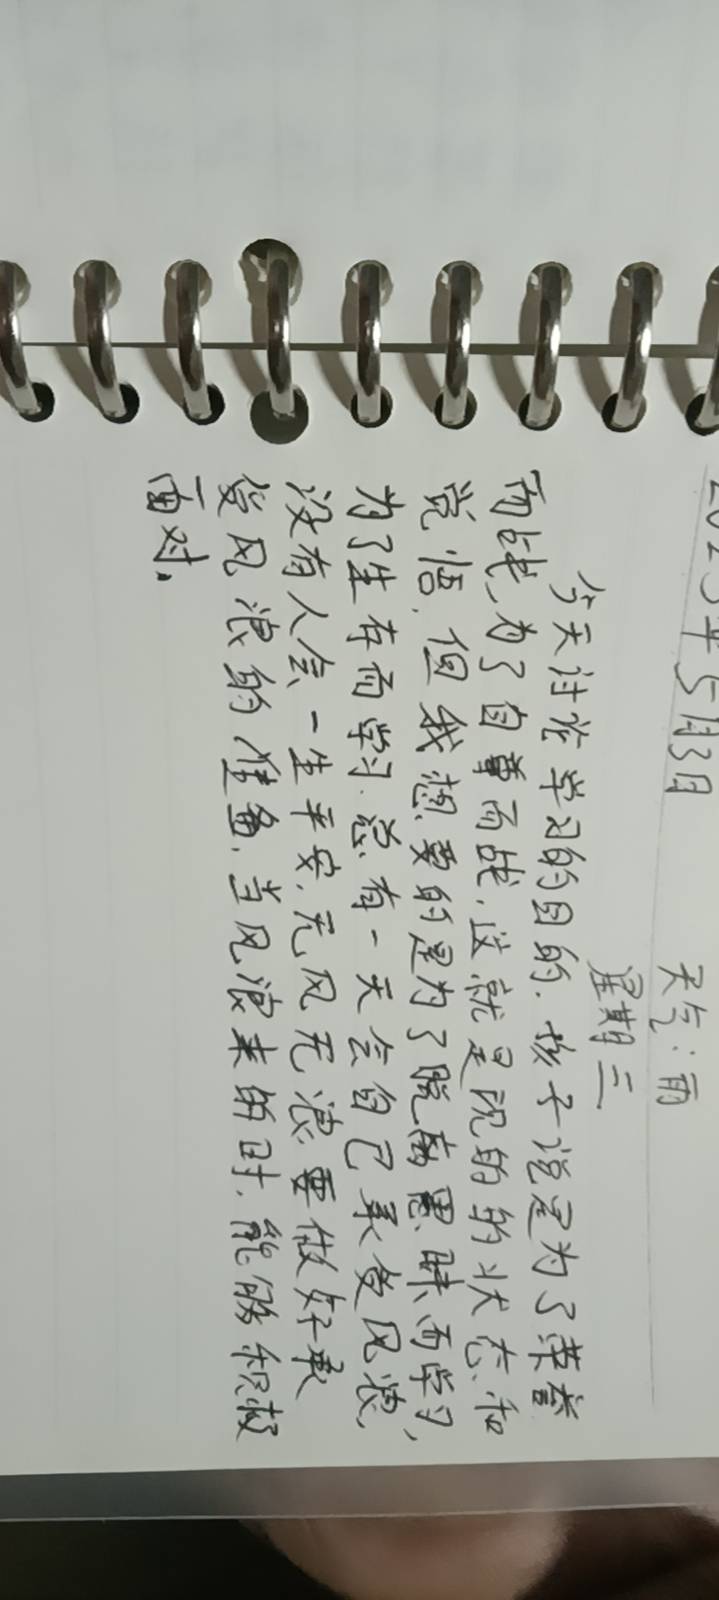 2023年5月3日 天气：雨
星期三
今天讨论学习的目的.孩子说是为了荣誉
而战,为了自尊而战.这就是现的的状态.和
觉悟.但我想要的是为了脱离愚昧而学习,
为了生存而学习.总有一天会自己承受风浪,
没有人会一生平安.无风无浪.要做好承
受风浪的准备.当风浪来的时.能够积极
面对.